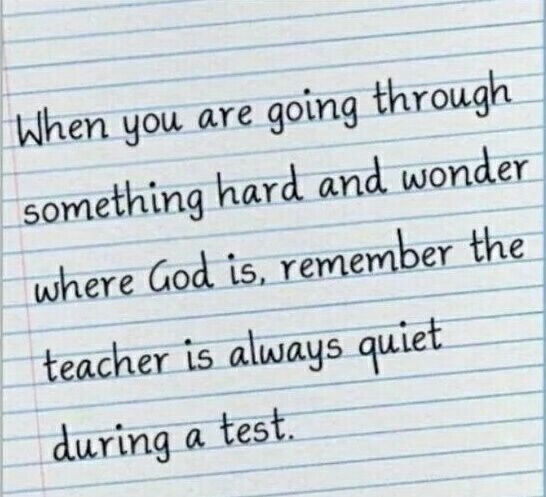 When you are going through
something hard and wonder
where God is, remember the
teacher is always quiet
during a test.